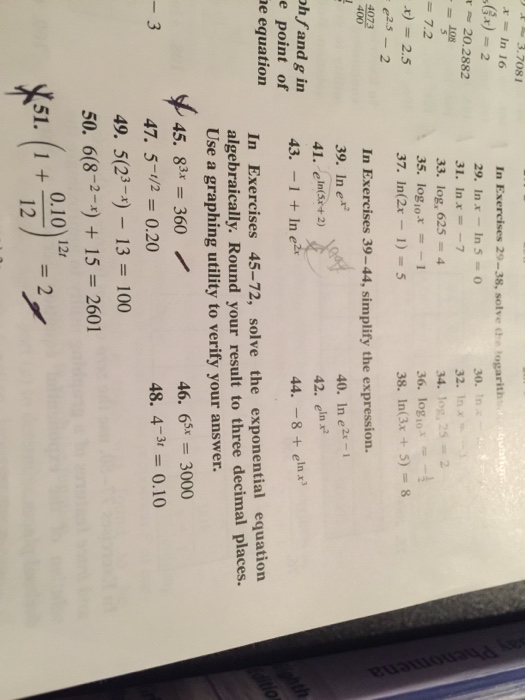 3.7081
x = ln 16
x) = 2
≈ 20.2882
= 7.2
x) = 2.5
e^{2.5} − 2
4073/400
ph f and g in
e point of
ne equation
− 3
In Exercises 29–38, solve
29. ln x − ln 5 = 0
30. ln x
31. ln x = −7
32. ln x = −1
33. log_x 625 = 4
34. log_x 25 = 2
35. log_{10} x = −1
36. log_{10} x = −1/2
37. ln(2x − 1) = 5
38. ln(3x + 5) = 8
In Exercises 39–44, simplify the expression.
39. ln e^{x^2}
40. ln e^{2x−1}
41. e^{ln(5x+2)}
42. e^{ln x^2}
43. −1 + ln e^{2x}
44. −8 + e^{ln x^3}
In Exercises 45–72, solve the exponential equation
algebraically. Round your result to three decimal places.
Use a graphing utility to verify your answer.
45. 8^{3x} = 360
46. 6^{5x} = 3000
47. 5^{−t/2} = 0.20
48. 4^{−3t} = 0.10
49. 5(2^{3−x}) − 13 = 100
50. 6(8^{−2−x}) + 15 = 2601
51. (1 + 0.10/12)^{12t} = 2
Phenomena